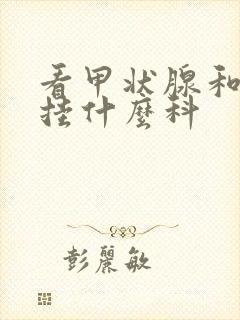 看甲状腺和
挂什麽科
彭麗敏